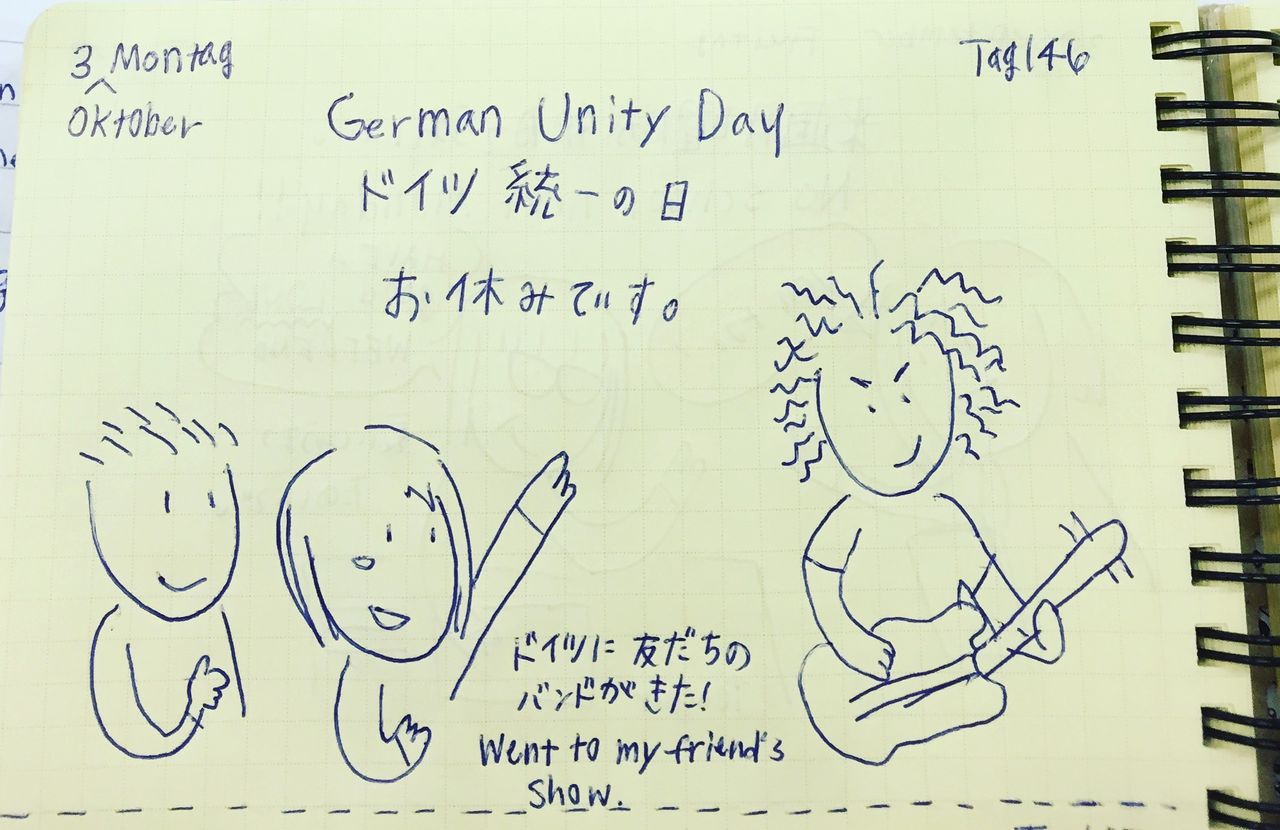 3 Montag
Oktober
Tag 146
German Unity Day
ドイツ 統一の日
お休みです。
ドイツに 友だちの
バンドがきた!
Went to my friend's
show.